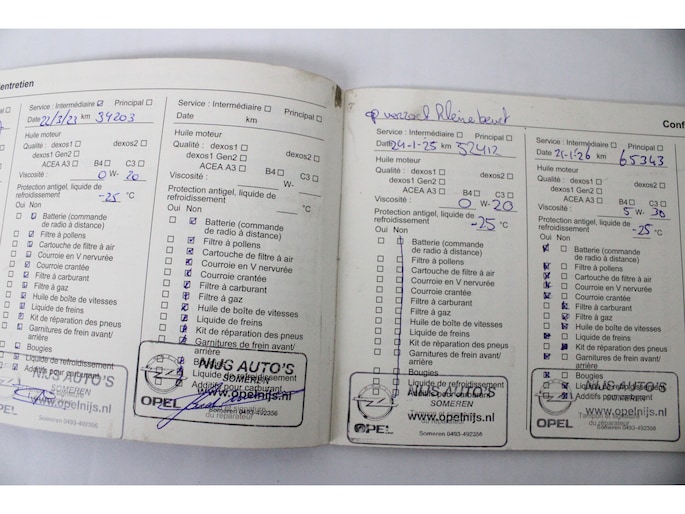 entretien
Service : Intermédiaire ☑ Principal ☐
Date 22/3/23 km 34203
Huile moteur
Qualité : dexos1 ☐ dexos2 ☐
dexos1 Gen2 ☐
ACEA A3 ☐ B4 ☐ C3 ☐
Viscosité : 0 W- 20
Protection antigel, liquide de
refroidissement -25 °C
Oui Non
Batterie (commande
de radio à distance)
Filtre à pollens
Cartouche de filtre à air
Courroie en V nervurée
Courroie crantée
Filtre à carburant
Filtre à gaz
Huile de boîte de vitesses
Liquide de freins
Kit de réparation des pneus
Garnitures de frein avant/
arrière
Bougies
Liquide de refroidissement
Additifs pour carburant
NIJS AUTO'S
SOMEREN
www.opelnijs.nl
Someren 0493-492356
OPEL
Service : Intermédiaire ☐ Principal ☐
Date km
Huile moteur
Qualité : dexos1 ☐ dexos2 ☐
dexos1 Gen2 ☐
ACEA A3 ☐ B4 ☐ C3 ☐
Viscosité : W-
Protection antigel, liquide de
refroidissement °C
Oui Non
Batterie (commande
de radio à distance)
Filtre à pollens
Cartouche de filtre à air
Courroie en V nervurée
Courroie crantée
Filtre à carburant
Filtre à gaz
Huile de boîte de vitesses
Liquide de freins
Kit de réparation des pneus
Garnitures de frein avant/
arrière
Bougies
Liquide de refroidissement
Additifs pour carburant
NIJS AUTO'S
SOMEREN
www.opelnijs.nl
du réparateur
Someren 0493-492356
OPEL
op verzoek kleine beurt
Service : Intermédiaire ☐ Principal ☐
Date 24-1-25 km 52412
Huile moteur
Qualité : dexos1 ☐ dexos2 ☐
dexos1 Gen2 ☐
ACEA A3 ☐ B4 ☐ C3 ☐
Viscosité : 0 W- 20
Protection antigel, liquide de
refroidissement -25 °C
Oui Non
Batterie (commande
de radio à distance)
Filtre à pollens
Cartouche de filtre à air
Courroie en V nervurée
Courroie crantée
Filtre à carburant
Filtre à gaz
Huile de boîte de vitesses
Liquide de freins
Kit de réparation des pneus
Garnitures de frein avant/
arrière
Bougies
Liquide de refroidissement
Additifs pour carburant
NIJS AUTO'S
SOMEREN
www.opelnijs.nl
du réparateur
Someren 0493-492356
OPEL
Conf
Service : Intermédiaire ☐ Principal ☐
Date 21-1-26 km 65343
Huile moteur
Qualité : dexos1 ☐ dexos2 ☐
dexos1 Gen2 ☐
ACEA A3 ☐ B4 ☐ C3 ☐
Viscosité : 5 W- 30
Protection antigel, liquide de
refroidissement -25 °C
Oui Non
Batterie (commande
de radio à distance)
Filtre à pollens
Cartouche de filtre à air
Courroie en V nervurée
Courroie crantée
Filtre à carburant
Filtre à gaz
Huile de boîte de vitesses
Liquide de freins
Kit de réparation des pneus
Garnitures de frein avant/
arrière
Bougies
Liquide de refroidissement
Additifs pour carburant
NIJS AUTO'S
SOMEREN
www.opelnijs.nl
du réparateur
Someren 0493-492356
OPEL